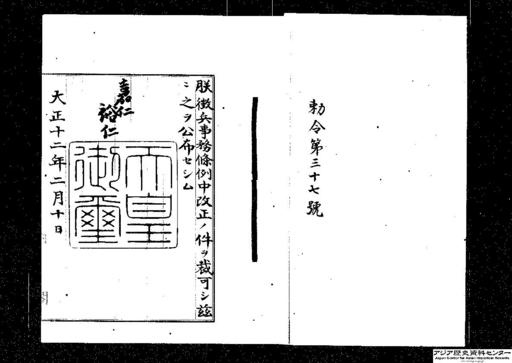 勅令第三十七號
朕徴兵事務條例中改正ノ件ヲ裁可シ玆
ニ之ヲ公布セシム
嘉仁
裕仁
天皇
御璽
大正十二年二月十日
アジア歴史資料センター
Japan Center for Asian Historical Records